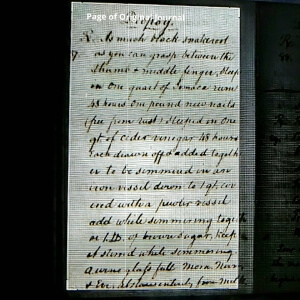 Page of Original Journal
Dropsy.
R. As much black snakeroot
as you can grasp between the
thumb & middle finger, steep
in one quart of Jamaca rum
48 hours one pound new nails
(free from rust) steeped in one
qt of cider vinegar 48 hours
each drawn off & added togeth
er to be simmered in an
iron vessel down to 1 qt, cov
ered with a pewter vessel
add while simmering togeth
er 1 lb. of brown sugar, keep
it stirred while simmering
a wine glass full Morn, Noon
&